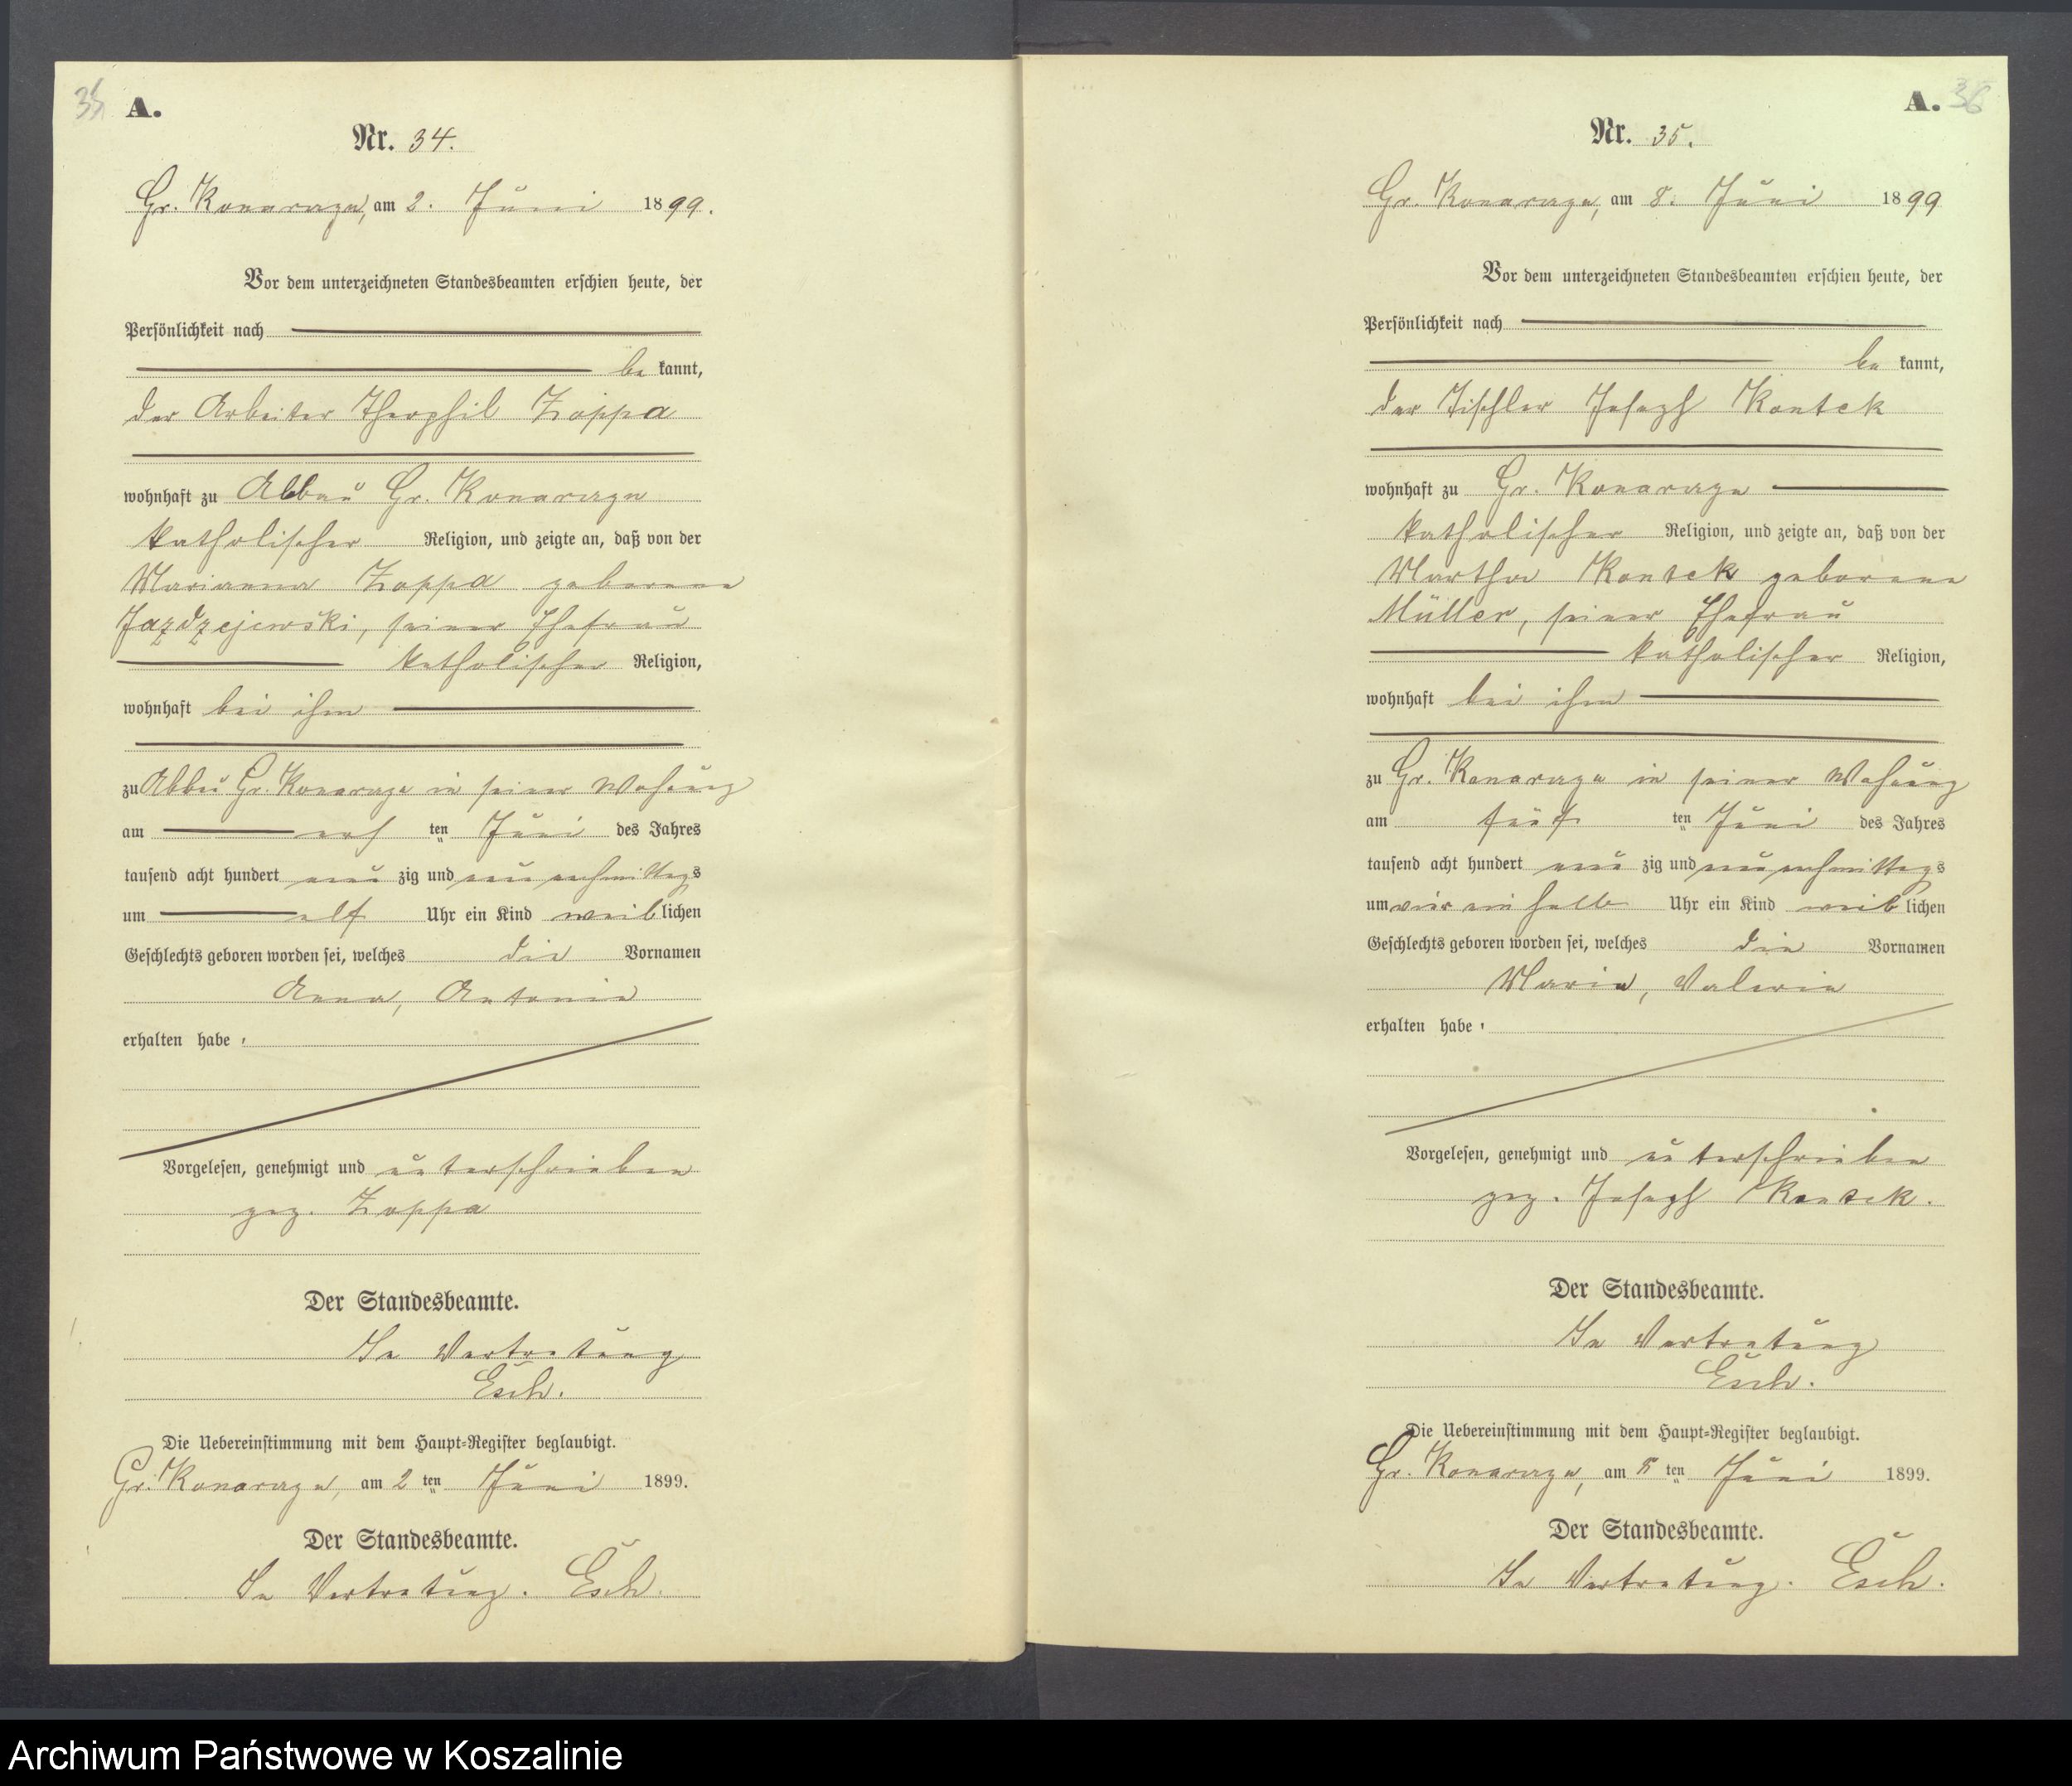 35
A.
Nr. 34.
Gr. Konarczyn, am 2. Juni 1899.
Vor dem unterzeichneten Standesbeamten erschien heute, der
Persönlichkeit nach
be kannt,
der Arbeiter Theophil Zoppa
wohnhaft zu Abbau Gr. Konarczyn
katholischer Religion, und zeigte an, daß von der
Marianna Zoppa geborene
Jazdzejewski, seiner Ehefrau
katholischer Religion,
wohnhaft bei ihm
zu Abbau Gr. Konarczyn in seiner Wohnung
am ersten Juni des Jahres
tausend acht hundert neunzig und neun nachmittags
um elf Uhr ein Kind weiblichen
Geschlechts geboren worden sei, welches die Vornamen
Anna, Antonie
erhalten habe.
Vorgelesen, genehmigt und unterschrieben
gez. Zoppa
Der Standesbeamte.
In Vertretung
Esch.
Die Uebereinstimmung mit dem Haupt-Register beglaubigt.
Gr. Konarczyn, am 2 ten Juni 1899.
Der Standesbeamte.
In Vertretung. Esch.
A. 36
Nr. 35.
Gr. Konarczyn, am 8. Juni 1899
Vor dem unterzeichneten Standesbeamten erschien heute, der
Persönlichkeit nach
be kannt,
der Tischler Joseph Kontek
wohnhaft zu Gr. Konarczyn
katholischer Religion, und zeigte an, daß von der
Martha Kontek geborene
Müller, seiner Ehefrau
katholischer Religion,
wohnhaft bei ihm
zu Gr. Konarczyn in seiner Wohnung
am fünften Juni des Jahres
tausend acht hundert neunzig und neun nachmittags
um vier ein halb Uhr ein Kind weiblichen
Geschlechts geboren worden sei, welches die Vornamen
Maria, Valeria
erhalten habe.
Vorgelesen, genehmigt und unterschrieben
gez. Joseph Kontek.
Der Standesbeamte.
In Vertretung
Esch.
Die Uebereinstimmung mit dem Haupt-Register beglaubigt.
Gr. Konarczyn, am 8 ten Juni 1899.
Der Standesbeamte.
In Vertretung. Esch.
Archiwum Państwowe w Koszalinie